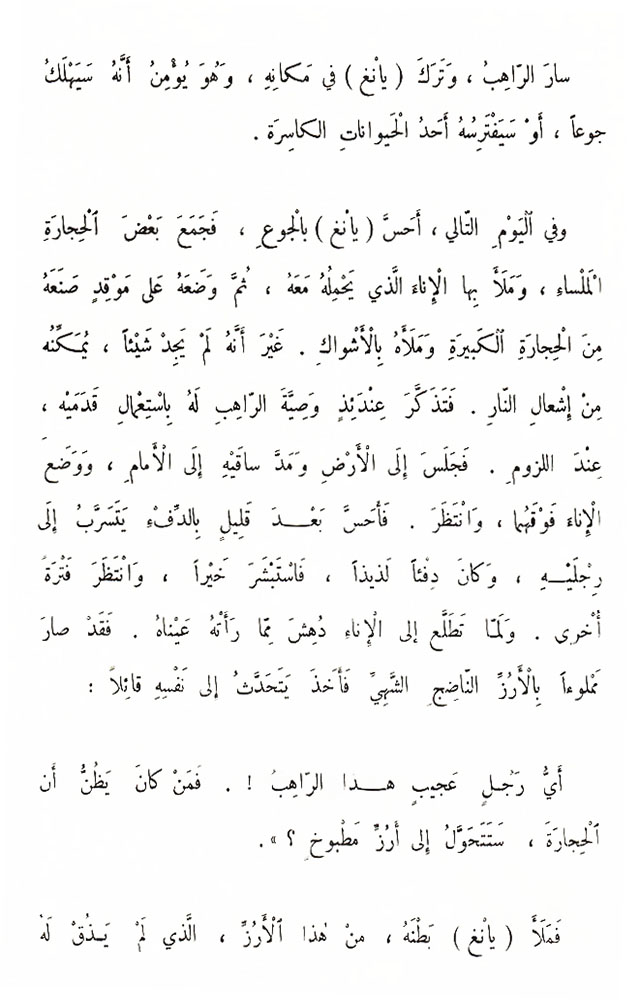 سارَ الرّاهِبُ ، وَتَرَكَ ( يانْغ ) في مَكانِهِ ، وَهُوَ يُؤْمِنُ أَنَّهُ سَيَهْلَكُ
جوعاً ، أَوْ سَيَفْتَرِسُهُ أَحَدُ الْحَيواناتِ الكاسِرَة .
وفي الْيَوْمِ التّالي ، أَحَسَّ ( يانْغ ) بالْجوعِ ، فَجَمَعَ بَعْضَ الْحِجارَةِ
الْمَلْساءِ ، وَمَلَأَ بِها الْإِناءَ الَّذي يَحْمِلُهُ مَعَهُ ، ثُمَّ وضَعَهُ عَلى مَوْقِدٍ صَنَعَهُ
مِنَ الْحِجارَةِ الْكَبيرَةِ وَمَلَأَهُ بِالْأَشْواكِ . غَيْرَ أَنَّهُ لَمْ يَجِدْ شَيْئاً ، يُمَكِّنُه
مِنْ إِشْعالِ النّارِ . فَتَذَكَّرَ عِنْدَئِذٍ وَصِيَّةَ الرّاهِبِ لَهُ بِاسْتِعْمالِ قَدَمَيْه ،
عِنْدَ اللزومِ . فَجَلَسَ إِلَى الْأَرْضِ وَمَدَّ ساقَيْهِ إِلَى الْأَمامِ ، وَوَضَعَ
الْإِناءَ فَوْقَهُما ، وَانْتَظَرَ . فَأَحَسَّ بَعْدَ قَليلٍ بِالدِّفْءِ يَتَسَرَّبُ إِلَى
رِجْلَيْهِ ، وَكانَ دِفْئاً لَذيذاً ، فَاسْتَبْشَرَ خَيْراً ، وَانْتَظَرَ فَتْرَةً
أُخْرى . وَلَمّا تَطَلَّع إلى الْإِناءِ دُهِشَ مِمّا رَأَتْهُ عَيْناهُ . فَقَدْ صارَ
مَمْلوءاً بِالْأَرُزِّ النّاضِجِ الشَّهِيِّ فَأَخَذَ يَتَحَدَّثُ إلى نَفْسِهِ قائِلاً :
أَيُّ رَجُلٍ عَجيبٍ هـذا الرّاهِبُ ! . فَمَنْ كانَ يَظُنُّ أن
الْحِجارَةَ ، سَتَتَحَوَّلُ إِلى أَرُزٍّ مَطْبوخٍ ؟ » .
فَمَلَأَ ( يانْغ ) بَطْنَهُ ، منْ هٰذا الْأَرُزِّ ، الَّذي لَمْ يَـذُقْ لَهُ